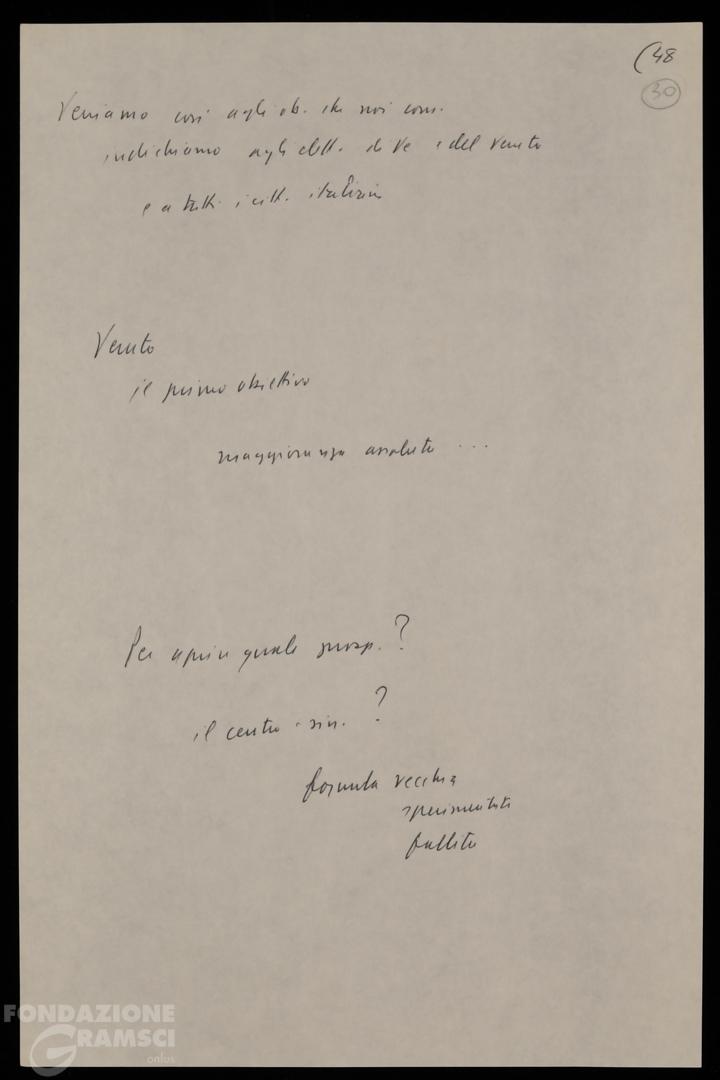 (48
30
Veniamo così agli ob. che noi com.
indichiamo agli elett. di Ve e del Veneto
e a tutti i citt. italiani
Veneto
il primo obiettivo
maggioranza assoluta ...
Per aprire quale prosp.?
il centro-sin.?
formula vecchia
sperimentata
fallita
FONDAZIONE
GRAMSCI
onlus